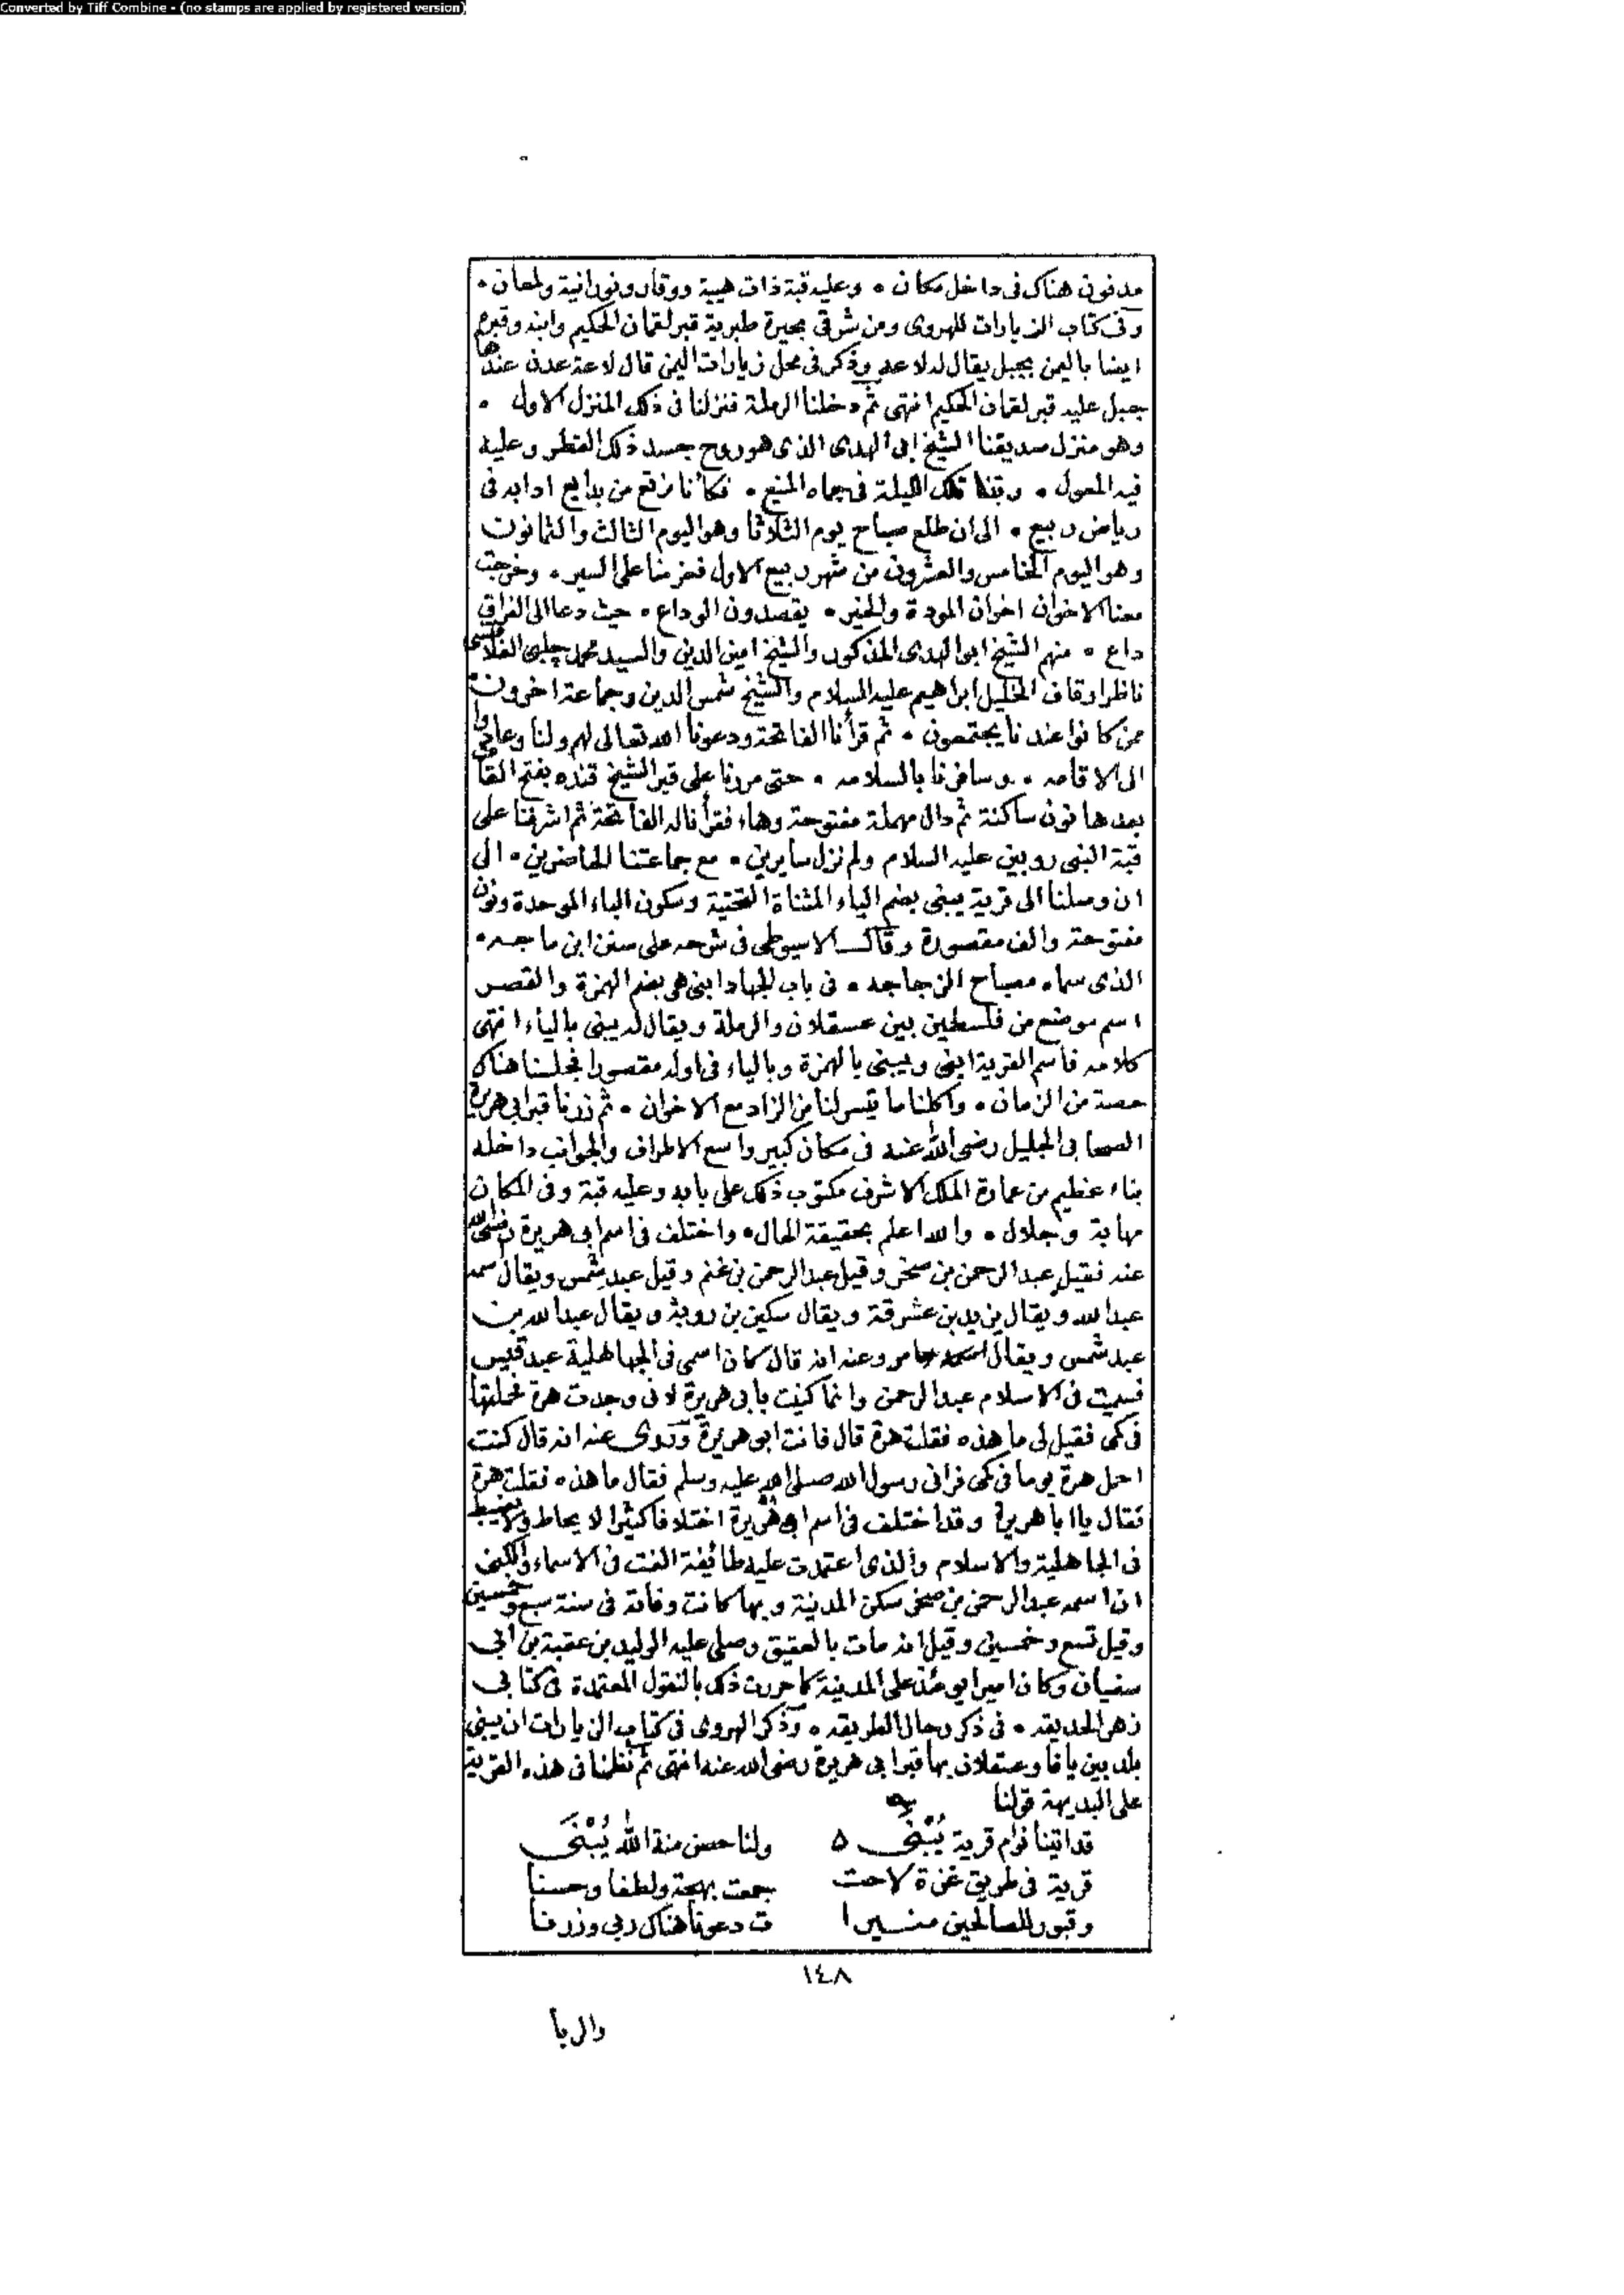 Converted by Tiff Combine - (no stamps are applied by registered version)
مدفون هناك فى داخل مكان • وعليه قبة ذات هيبة ووقار ونورانية ولمعان •
وفى كتاب الزيارات للهروى ومن شرقى بحيرة طبرية قبر لقمان الحكيم وابنه وقبره
ايضا باليمن بجبل يقال له لاعه وذكر فى محل زيارات اليمن قال لاعة عدن عندها
جبل عليه قبر لقمان الحكيم انتهى ثم دخلنا الرملة فنزلنا فى ذلك المنزل الاول •
وهو منزل صديقنا الشيخ ابى الهدى الذى هو روح جسد ذلك القطر وعليه
فيه المعول • وبتنا تلك الليلة فى حماه المنيع • فكأنا نرتع من بدايع ادابه فى
رياض ربيع • الى ان طلع صباح يوم الثلاثا وهو اليوم الثالث والثمانون
وهو اليوم الخامس والعشرون من شهر ربيع الاول فعزمنا على السير • وخرجت
معنا الاخوان اخوان المودة والخير • يقصدون الوداع • حيث دعا الى الفراق
داع • منهم الشيخ ابو الهدى المذكور والشيخ امين الدين والسيد محمد چلبى
ناظر اوقاف الخليل ابراهيم عليه السلام والشيخ شمس الدين وجماعة اخرون
ممن كانوا عندنا يجتمعون • ثم قرأنا الفاتحة ودعونا الله تعالى لهم ولنا وعادوا
الى الاقامه • وسافرنا بالسلامه • حتى مررنا على قبر الشيخ قنده بفتح القاف
بعدها نون ساكنة ثم دال مهملة مفتوحة وهاء فقرأنا له الفاتحة ثم اشرفنا على
قبة النبى روبين عليه السلام ولم نزل سايرين • مع جماعتنا الحاضرين • الى
ان وصلنا الى قرية يبنى بضم الياء المثناة التحتية وسكون الباء الموحدة ونون
مفتوحة والف مقصورة وقال الاسيوطى فى شرحه على سنن ابن ماجه •
الذى سماه مصباح الزجاجه • فى باب الجهاد ابنى هى بضم الهمزة والقصر
اسم موضع من فلسطين بين عسقلان والرملة ويقال له يبنى بالياء انتهى
كلامه فاسم القرية ابنى ويبنى بالهمزة وبالياء فى اوله مقصورا فجلسنا هناك
حصة من الزمان • واكلنا ما تيسر لنا من الزاد مع الاخوان • ثم زرنا قبر ابى هريرة
الصحابى الجليل رضى الله عنه فى مكان كبير واسع الاطراف والجوانب داخله
بناء عظيم من عمارة الملك الاشرف مكتوب ذلك على بابه وعليه قبة وفى المكان
مهابة وجلال • والله اعلم بحقيقة الحال • واختلف فى اسم ابى هريرة رضى الله
عنه فقيل عبد الرحمن بن صخر وقيل عبد الرحمن بن غنم وقيل عبد شمس ويقال اسمه
عبد الله ويقال يزيد بن عشرقة ويقال سكين بن رويثه ويقال عبد الله بن
عبد شمس ويقال عامر وعنه انه قال كان اسمى فى الجاهلية عبد قيس
فسميت فى الاسلام عبد الرحمن وانما كنيت بابى هريرة لانى وجدت هرة فحملتها
فى كمى فقيل لى ما هذه فقلت هرة قال فانت ابو هريرة وروى عنه انه قال كنت
احمل هرة يوما فى كمى فرانى رسول الله صلى الله عليه وسلم فقال ما هذه فقلت هرة
فقال يا ابا هريرة وقد اختلف فى اسم ابى هريرة اختلافا كثيرا لا يحاط ولا يضبط
فى الجاهلية والاسلام والذى اعتمدت عليه طائفة الفت فى الاسماء والكنى
ان اسمه عبد الرحمن بن صخر سكن المدينة وبها كانت وفاته فى سنة سبع وخمسين
وقيل تسع وخمسين وقيل انه مات بالعقيق وصلى عليه الوليد بن عقبة بن ابى
سفيان وكان اميرا يومئذ على المدينة كما حررت ذلك بالنقول المعتمدة فى كتابى
زهر الحديقه • فى ذكر رجال الطريقه • وذكر الهروى فى كتاب الزيارات ان يبنى
بلد بين يافا وعسقلان بها قبر ابى هريرة رضى الله عنه انتهى ثم نظمنا فى هذه القرية
على البديهة قولنا
قد اتينا نوام قرية يُبْنَى ولنا حسن منة الله يُبْنَى
قرية فى طريق غزة لاحت جمعت بهجة ولطفا وحسنا
وقبور للصالحين منيرا ت دعونا هناك ربى وزرنا
١٤٨